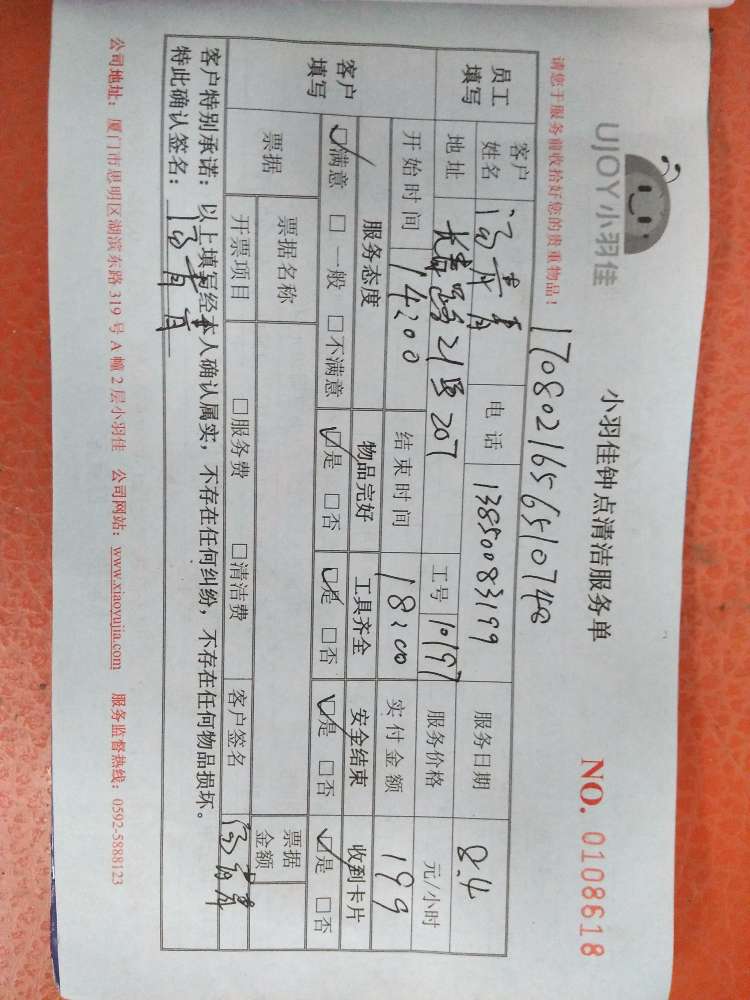 UJOY小羽佳
小羽佳钟点清洁服务单
NO. 0108618
请您于服务前收拾好您的贵重物品！
1708021656510748
员工填写
客户姓名
电话 13850083199
服务日期 8.4
地址 长青路21号207
工号 10197
服务价格 元/小时
开始时间 14:00
结束时间 18:00
实付金额 199
客户填写
服务态度 物品完好 工具齐全 安全结束 收到卡片
☑满意 □一般 □不满意 ☑是 □否 ☑是 □否 ☑是 □否 ☑是 □否
票据
票据名称
票据金额
开票项目 □服务费 □清洁费 客户签名
客户特别承诺：以上填写经本人确认属实，不存在任何纠纷，不存在任何物品损坏。
特此确认签名：
公司地址：厦门市思明区湖滨东路319号A幢2层小羽佳 公司网站：www.xiaoyujia.com 服务监督热线：0592-5888123